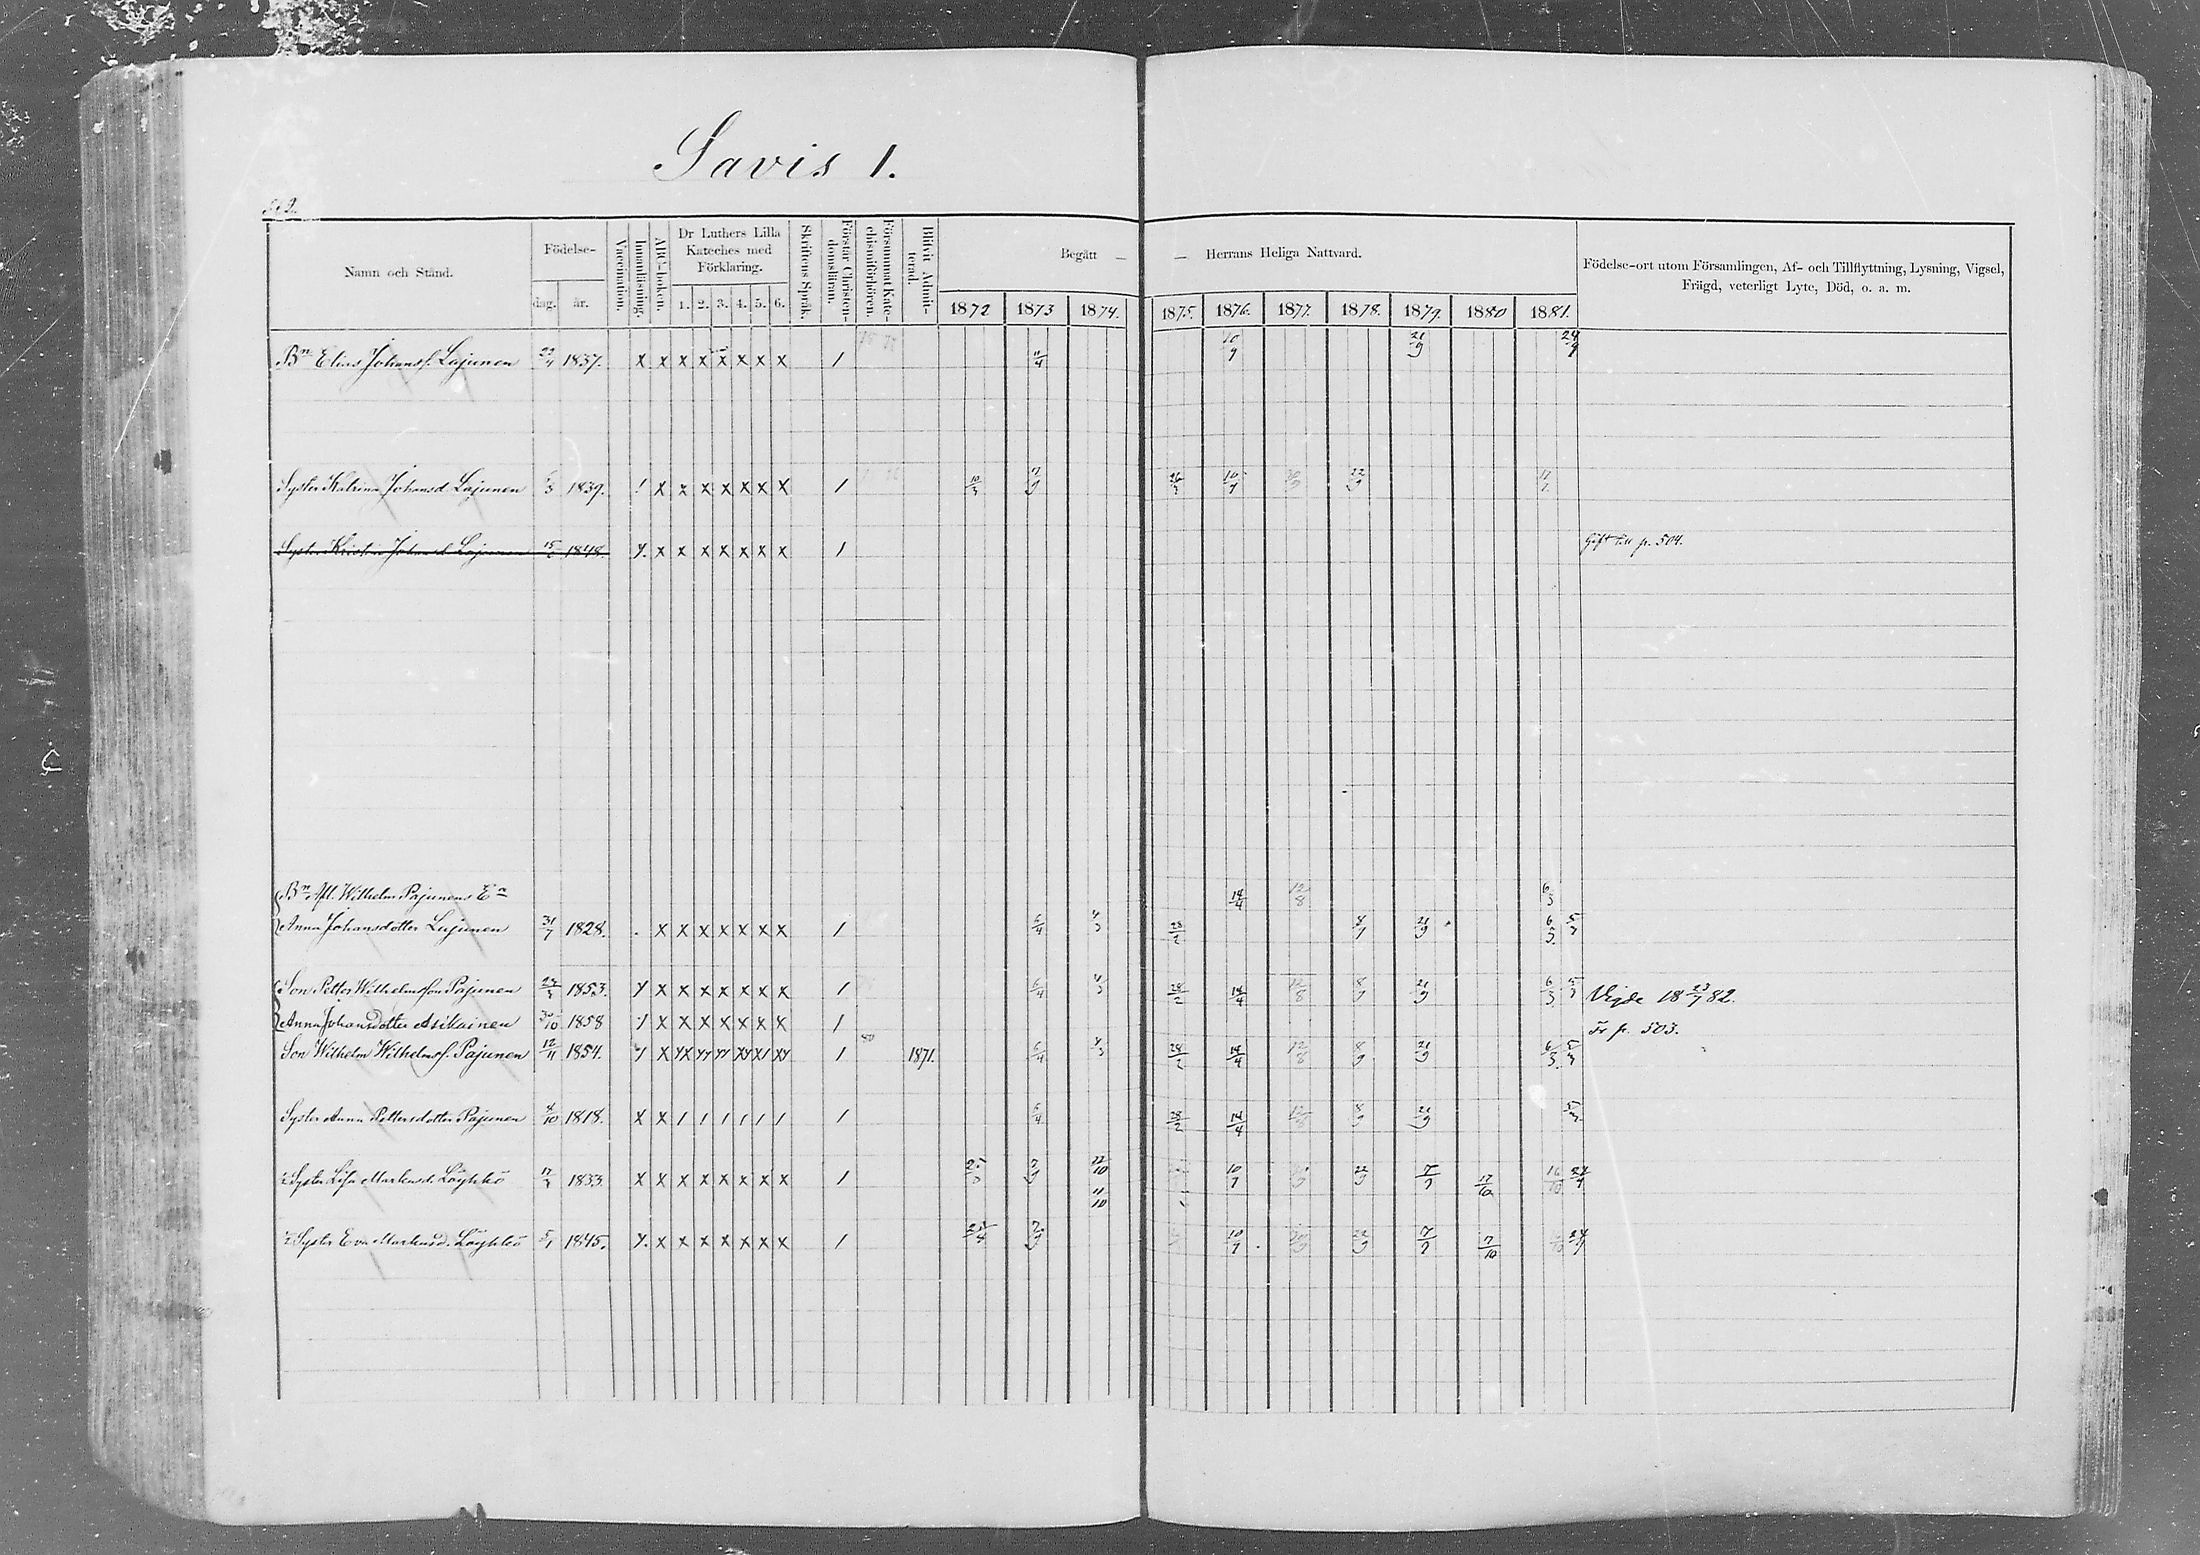 Savis 1.
Namn och Stånd.
Födelse-
dag.
år.
Vaccination.
Innanläsning.
ABC-boken.
Dr Luthers Lilla
Kateches med
Förklaring.
1. 2. 3. 4. 5. 6.
Skriftens Språk.
Förstår Christen-
domsläran.
Försummat Kate-
chismiförhören.
Blifvit Admit-
terad.
Begått — — Herrans Heliga Nattvard.
1872 1873 1874. 1875. 1876. 1877. 1878. 1879. 1880 1881.
Födelse-ort utom Församlingen, Af- och Tillflyttning, Lysning, Vigsel,
Frägd, veterligt Lyte, Död, o. a. m.
Bn Elias Johansf. Lajunen 1837. x x x x x x x x 1 11/4 10/9 21/9 24/9
Syster Katrina Johansd Lajunen 1839. x x x x x x x 1 10/3 7/9 10/9 22/9
Syster Kristin Johansd Lajunen 1848. x x x x x x x 1 Gift till p. 504.
Bn Afl. Wilhelm Pajunens En 14/4 12/8 6/3
Anna Johansdotter Lajunen 31/7 1828. x x x x x x x 1 6/4 4/3 28/2 8/9 21/9 6/3 5/3
Son Petter Wilhelmsson Pajunen 1853. x x x x x x x 1 6/4 4/3 28/2 14/4 12/8 8/9 21/9 6/3 5/3 Vigde 18 23/7 82.
Anna Johansdotter Asikainen 30/10 1858 x x x x x x x 1 Fr p. 503.
Son Wilhelm Wilhelmsf. Pajunen 12/11 1854. 1 80 1871. 6/4 4/3 28/2 14/4 12/8 8/9 21/9 6/3 5/3
Syster Anna Pettersdotter Pajunen 4/10 1818. x x 1 1 1 1 1 1 1 6/4 28/2 14/4 12/8 8/9 21/9 5/3
Syster Lisa Markusd. Löyhkö 1833. x x x x x x x x 1 7/9 22/10 10/9 22/9 7/9 17/10 16/10 24/9
11/10
Syster Eva Markusd. Löyhkö 1845. x x x x x x x 1 7/9 10/9 22/9 7/9 7/10 24/9